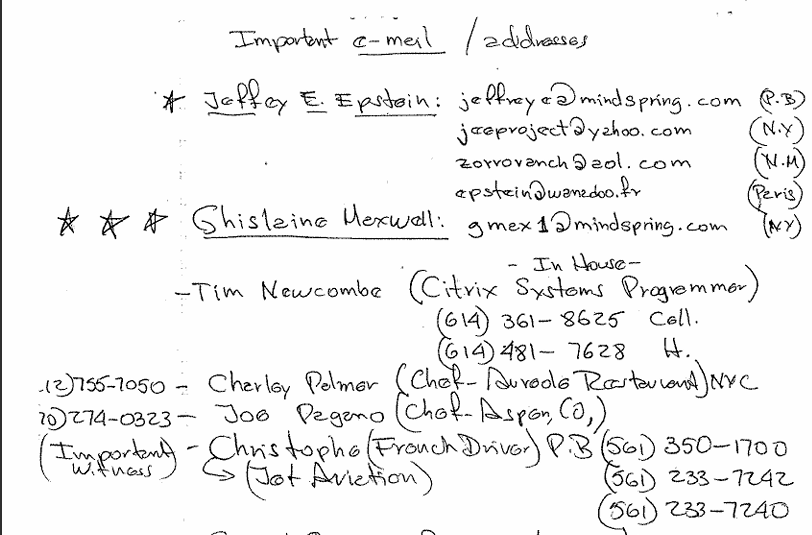 Important e-mail / addresses
★ Jeffey E. Epstein: jeffreye@mindspring.com (P.B)
jeeproject@yahoo.com (N.Y)
zorroranch@aol.com (N.M)
epstein@wanadoo.fr (Paris)
★ ★ ★ Ghislaine Maxwell: gmax1@mindspring.com (NY)
- In House -
- Tim Newcombe (Citrix Systems Programmer)
(614) 361-8625 Cell.
(614) 481-7628 H.
12)755-7050 - Charley Palmer (Chef- Aureole Restaurant) NYC
70)274-0323 - Joe Pagano (Chef- Aspen, CO,)
(Important Witness) - Christophe (French Driver) P.B (561) 350-1700
(Jet Aviation) (561) 233-7242
(561) 233-7240